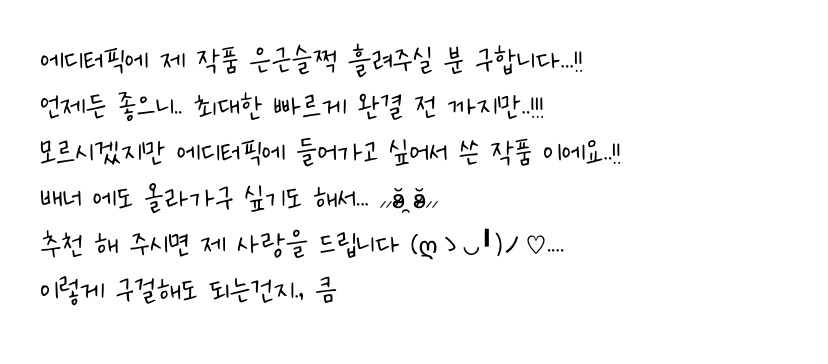 에디터픽에 제 작품 은근슬쩍 흘려주실 분 구합니다...!!
언제든 좋으니.. 최대한 빠르게 완결 전 까지만..!!!
모르시겠지만 에디터픽에 들어가고 싶어서 쓴 작품 이에요..!!
배너 에도 올라가구 싶기도 해서... ⸝⸝ʚ̴̶̷̆ ̯ʚ̴̶̷̆⸝⸝
추천 해 주시면 제 사랑을 드립니다 (ღゝ◡╹)ノ♡....
이렇게 구걸해도 되는건지., 큼